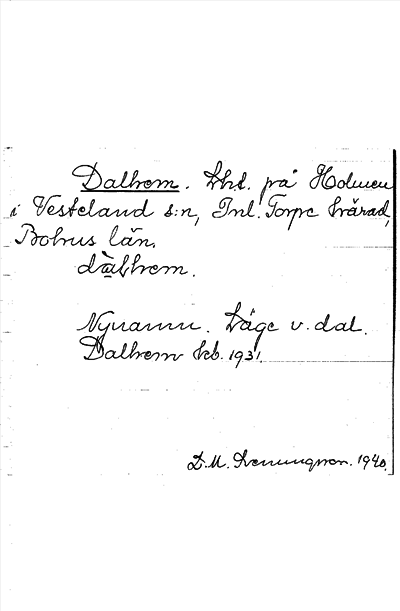 Dalhem. Lht. på Holmen
i Vesterland s:n, Inl. Torpe härad,
Bohus län.
dàlhem.
Nynamn. Läge v. dal.
Dalhem Lht. 1931.
D. M. Svenungsson. 1940.